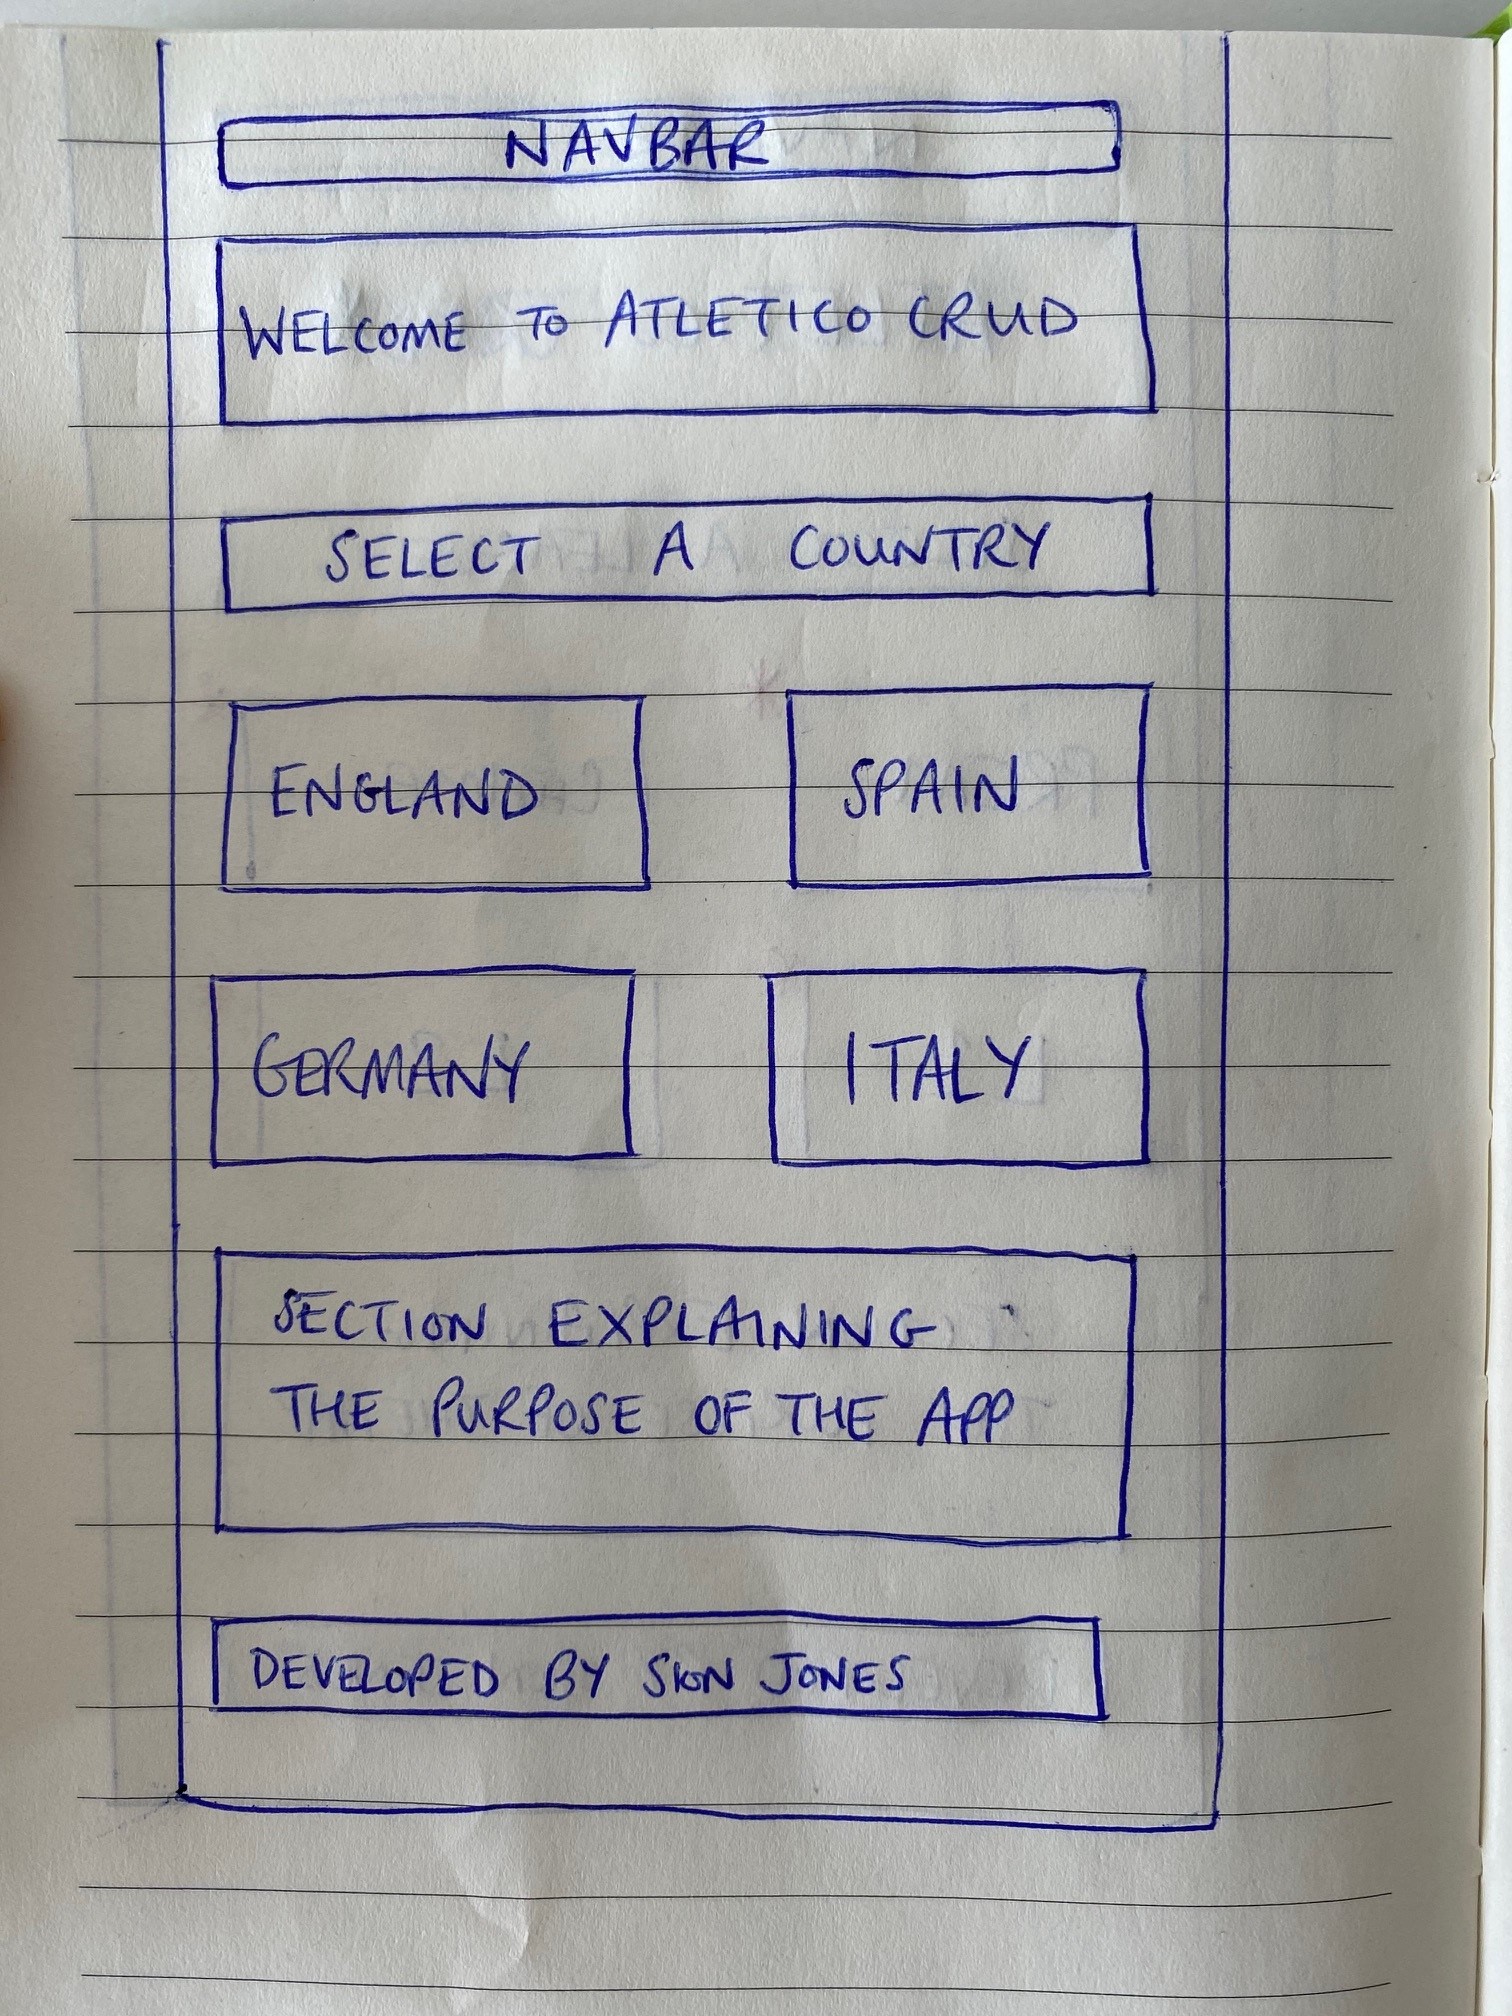 NAVBAR
WELCOME TO ATLETICO CRUD
SELECT A COUNTRY
ENGLAND SPAIN
GERMANY ITALY
SECTION EXPLAINING
THE PURPOSE OF THE APP
DEVELOPED BY SION JONES